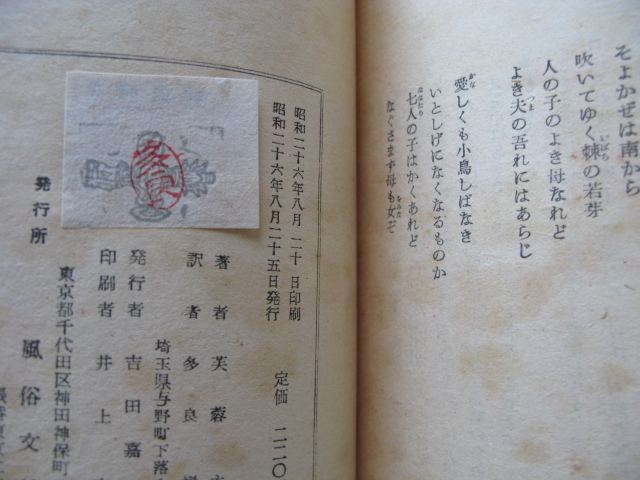 そよかぜは南から
吹いてゆく棘の若芽
いばら
人の子のよき母なれど
よき夫の吾れにはあらじ
つま
愛しくも小鳥しばなき
かな
いとしげになくなるものか
七人の子はかくあれど
ななたり
なぐさまず母も女ぞ
をみな
昭和二十六年八月二十日印刷
昭和二十六年八月二十五日発行
定価 二二〇
著者 芙蓉
訳者 多良
埼玉県与野町下落
発行者 吉田嘉
印刷者 井上
東京都千代田区神田神保町
発行所 風俗文